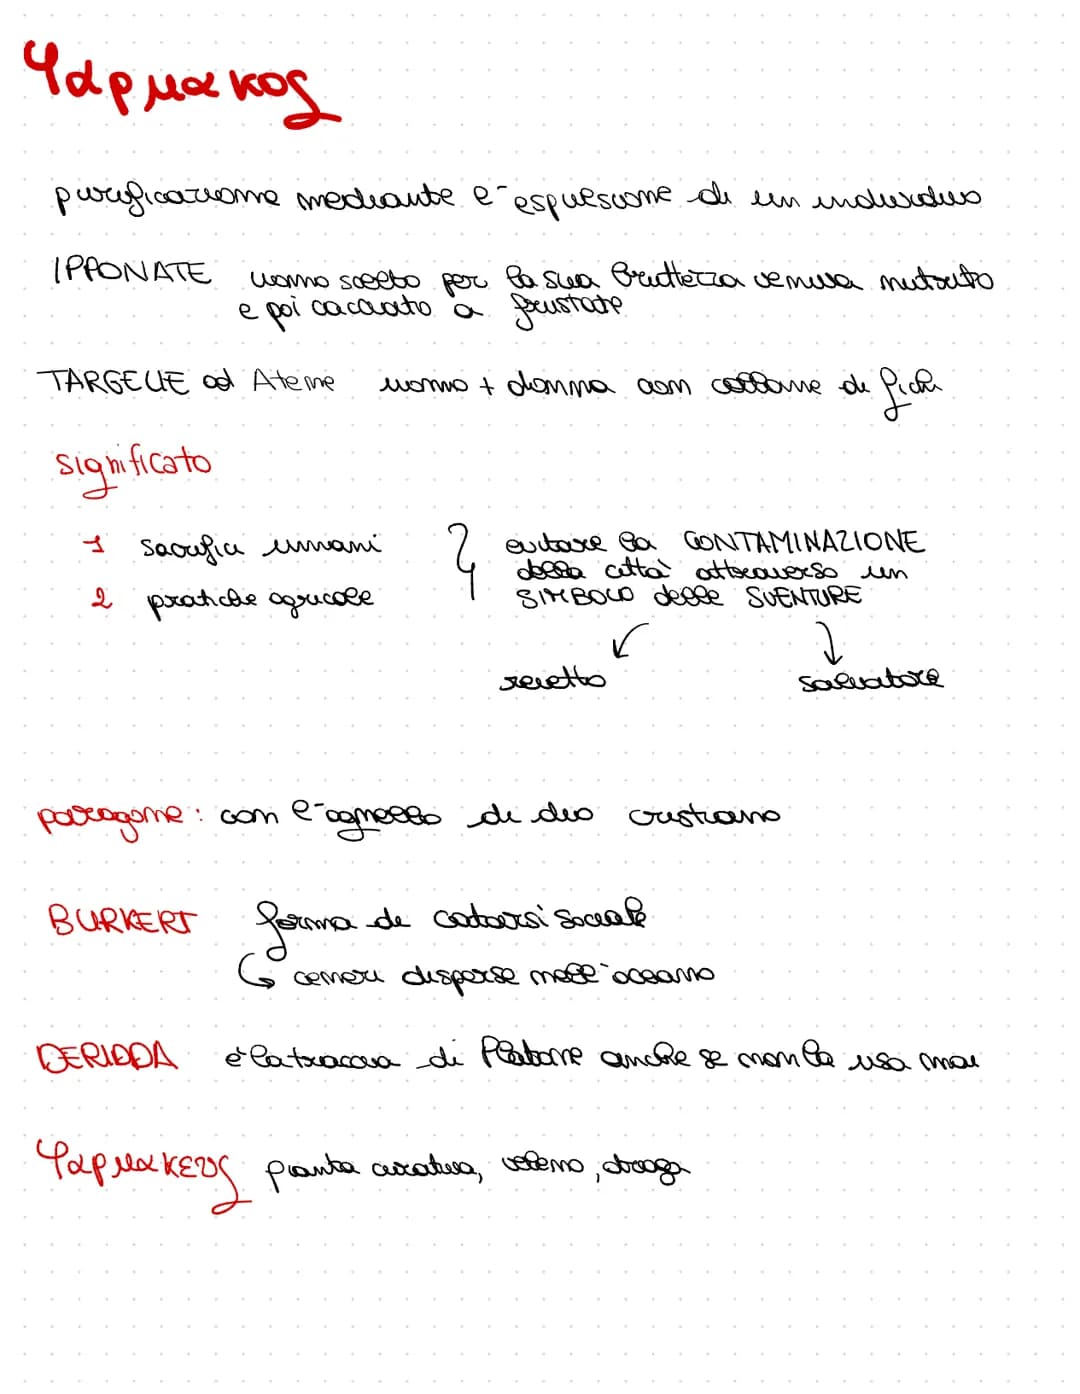 φάρμακος
purificazione mediante l'espulsione di un individuo
IPPONATE uomo scelto per la sua bruttezza veniva nutrito
e poi cacciato a frustate
TARGELIE ad Atene uomo + donna con collane di fichi
significato
1 sacrifici umani
2 pratiche agricole
evitare la CONTAMINAZIONE
della città attraverso un
SIMBOLO delle SVENTURE
reietto salvatore
paragone: con l'agnello di dio cristiano
BURKERT forma di catarsi sociale
ceneri disperse nell'oceano
DERIDDA è la traccia di Platone anche se non la usa mai
φαρμακευς pianta curativa, veleno, droga